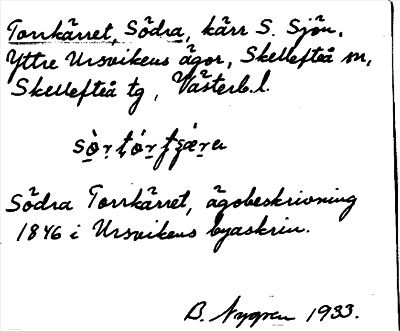 Torrkärret, Södra, kärr S. Sjön,
Yttre Ursvikens ägor, Skellefteå sn,
Skellefteå tg, Västerb.l.
Södra Torrkärret, ägobeskrivning
1846 i Ursvikens byaskrin.
B. Nygren 1933.